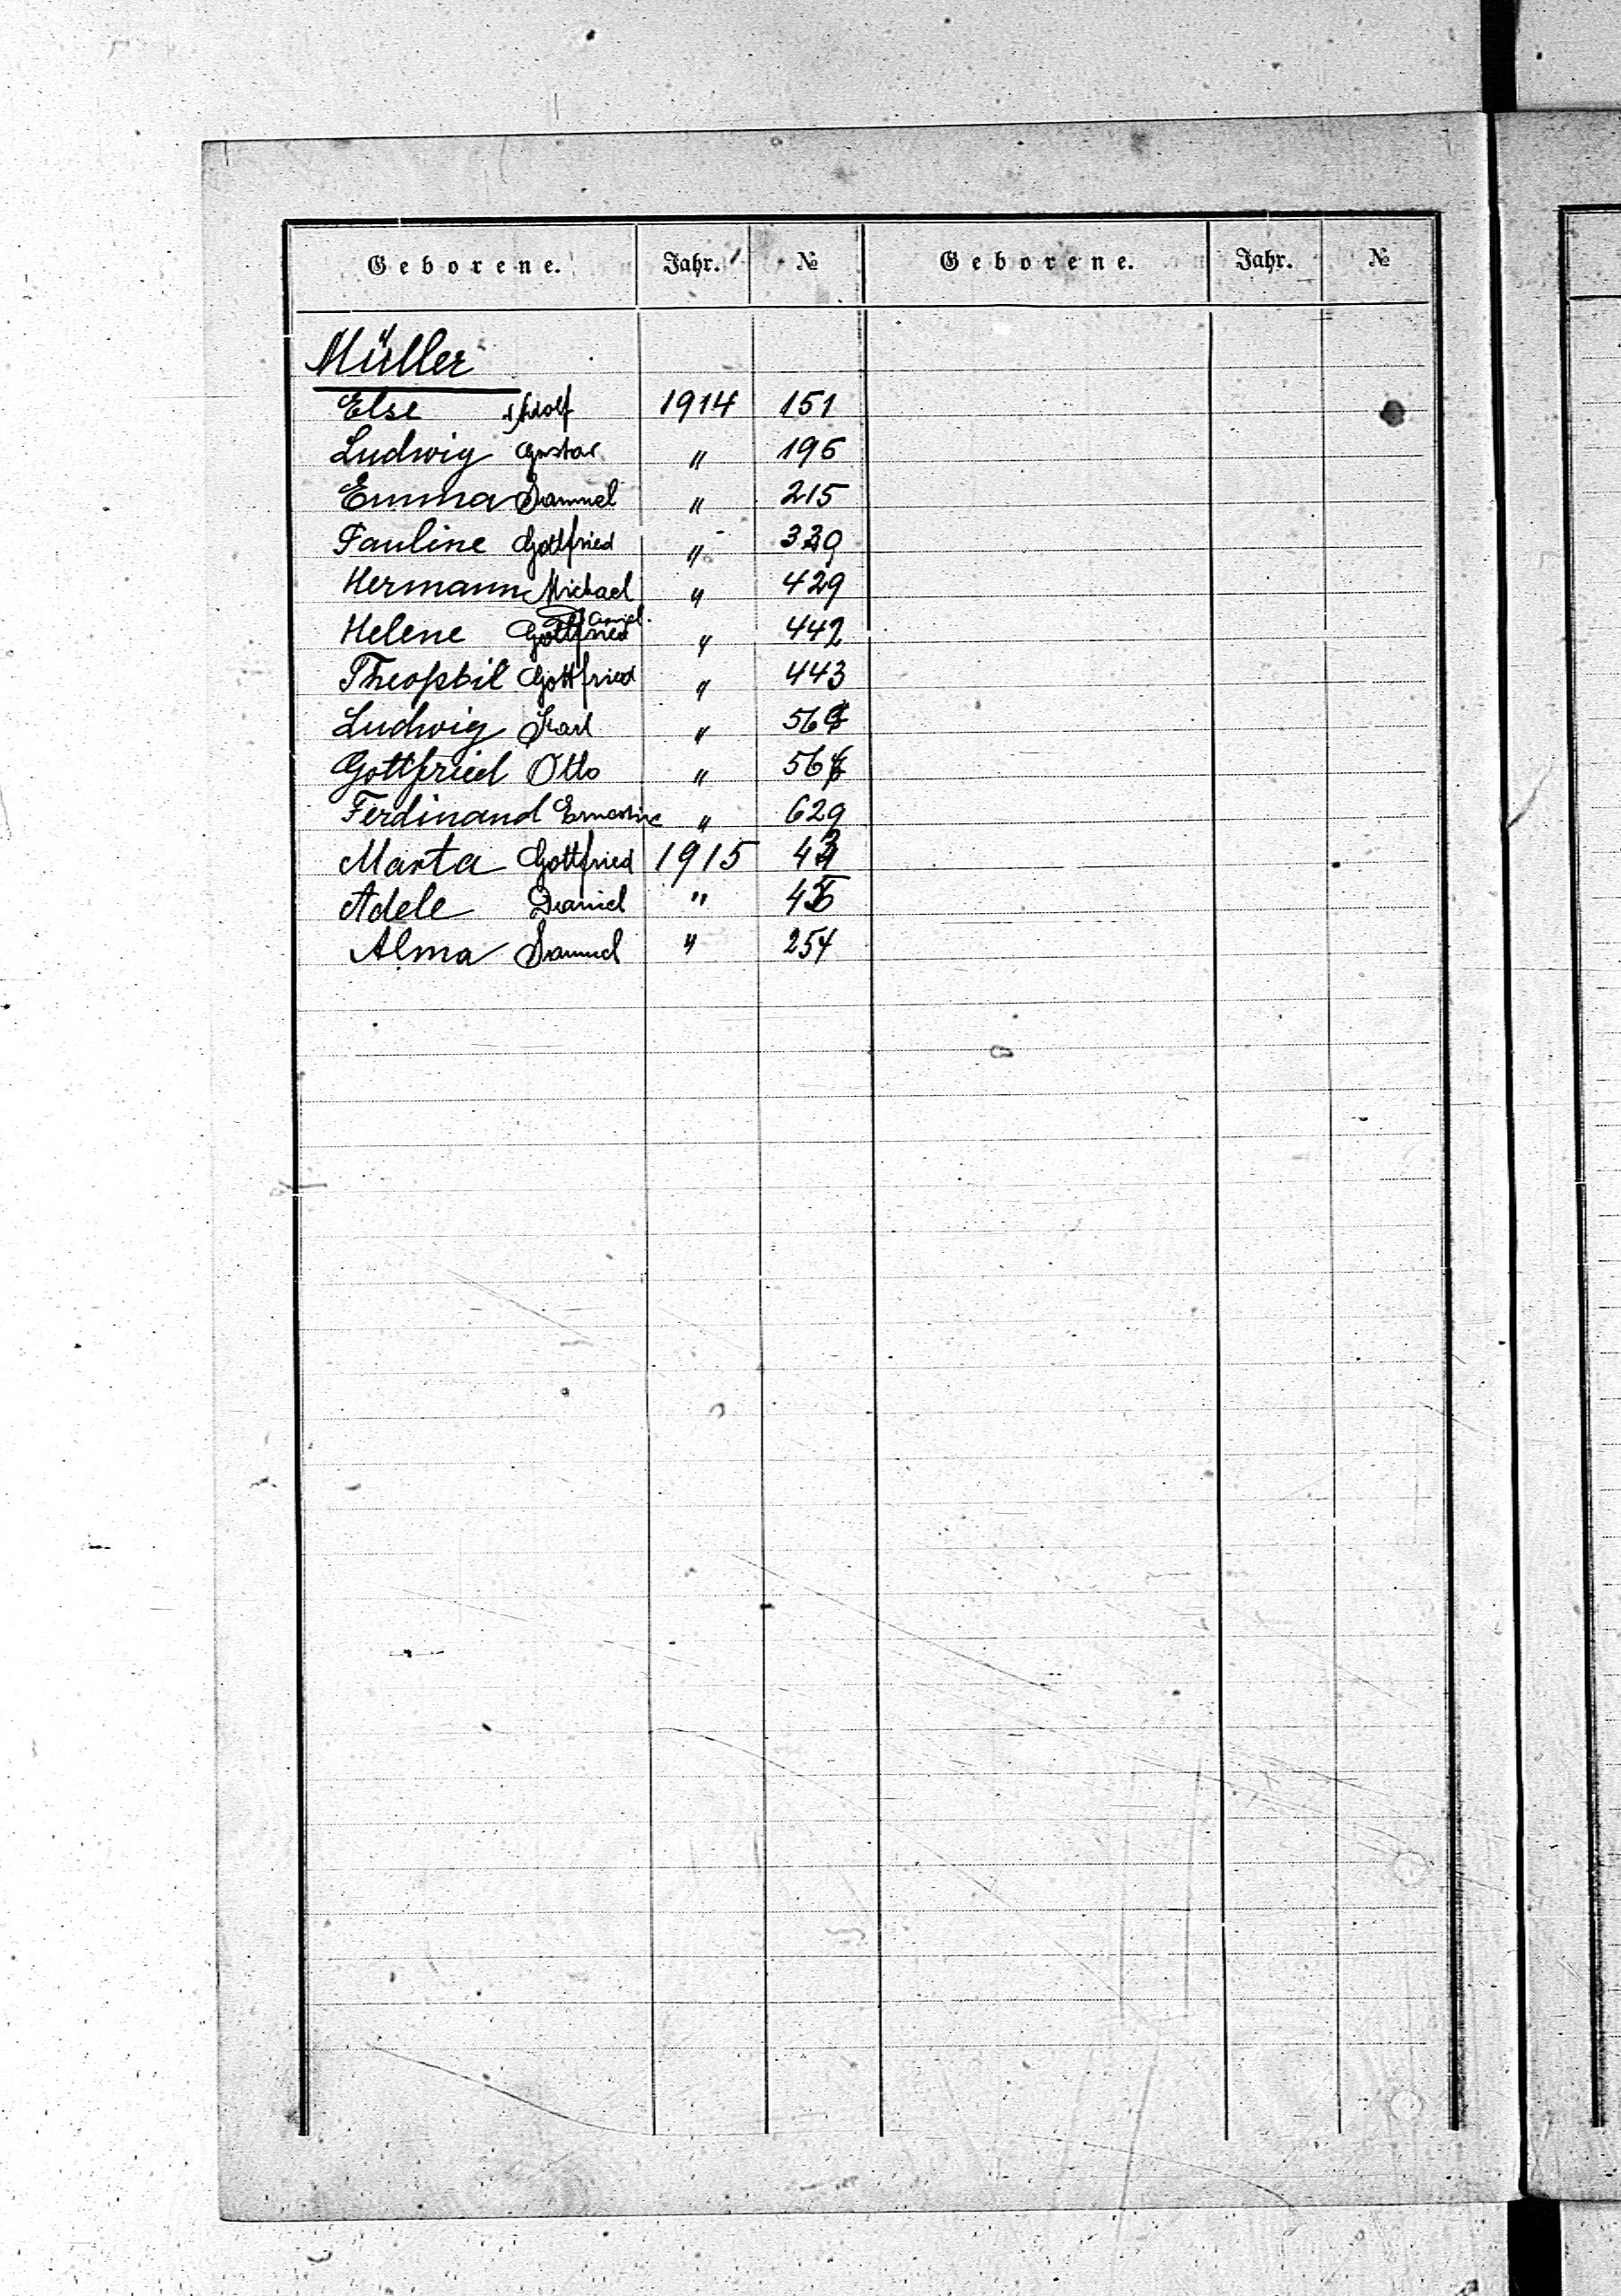 Geborene. Jahr. № Geborene. Jahr. №
Müller
Else Adolf 1914 151
Ludwig Gustav " 195
Emma Samuel " 215
Pauline Gottfried " 339
Hermann Michael " 429
Daniel
Helene Gottfried " 442
Theophil Gottfried " 443
Ludwig Karl "
Gottfried Otto "
Ferdinand Ernestine " 629
Marta Gottfried 1915
Adele Daniel "
Alma Samuel " 254